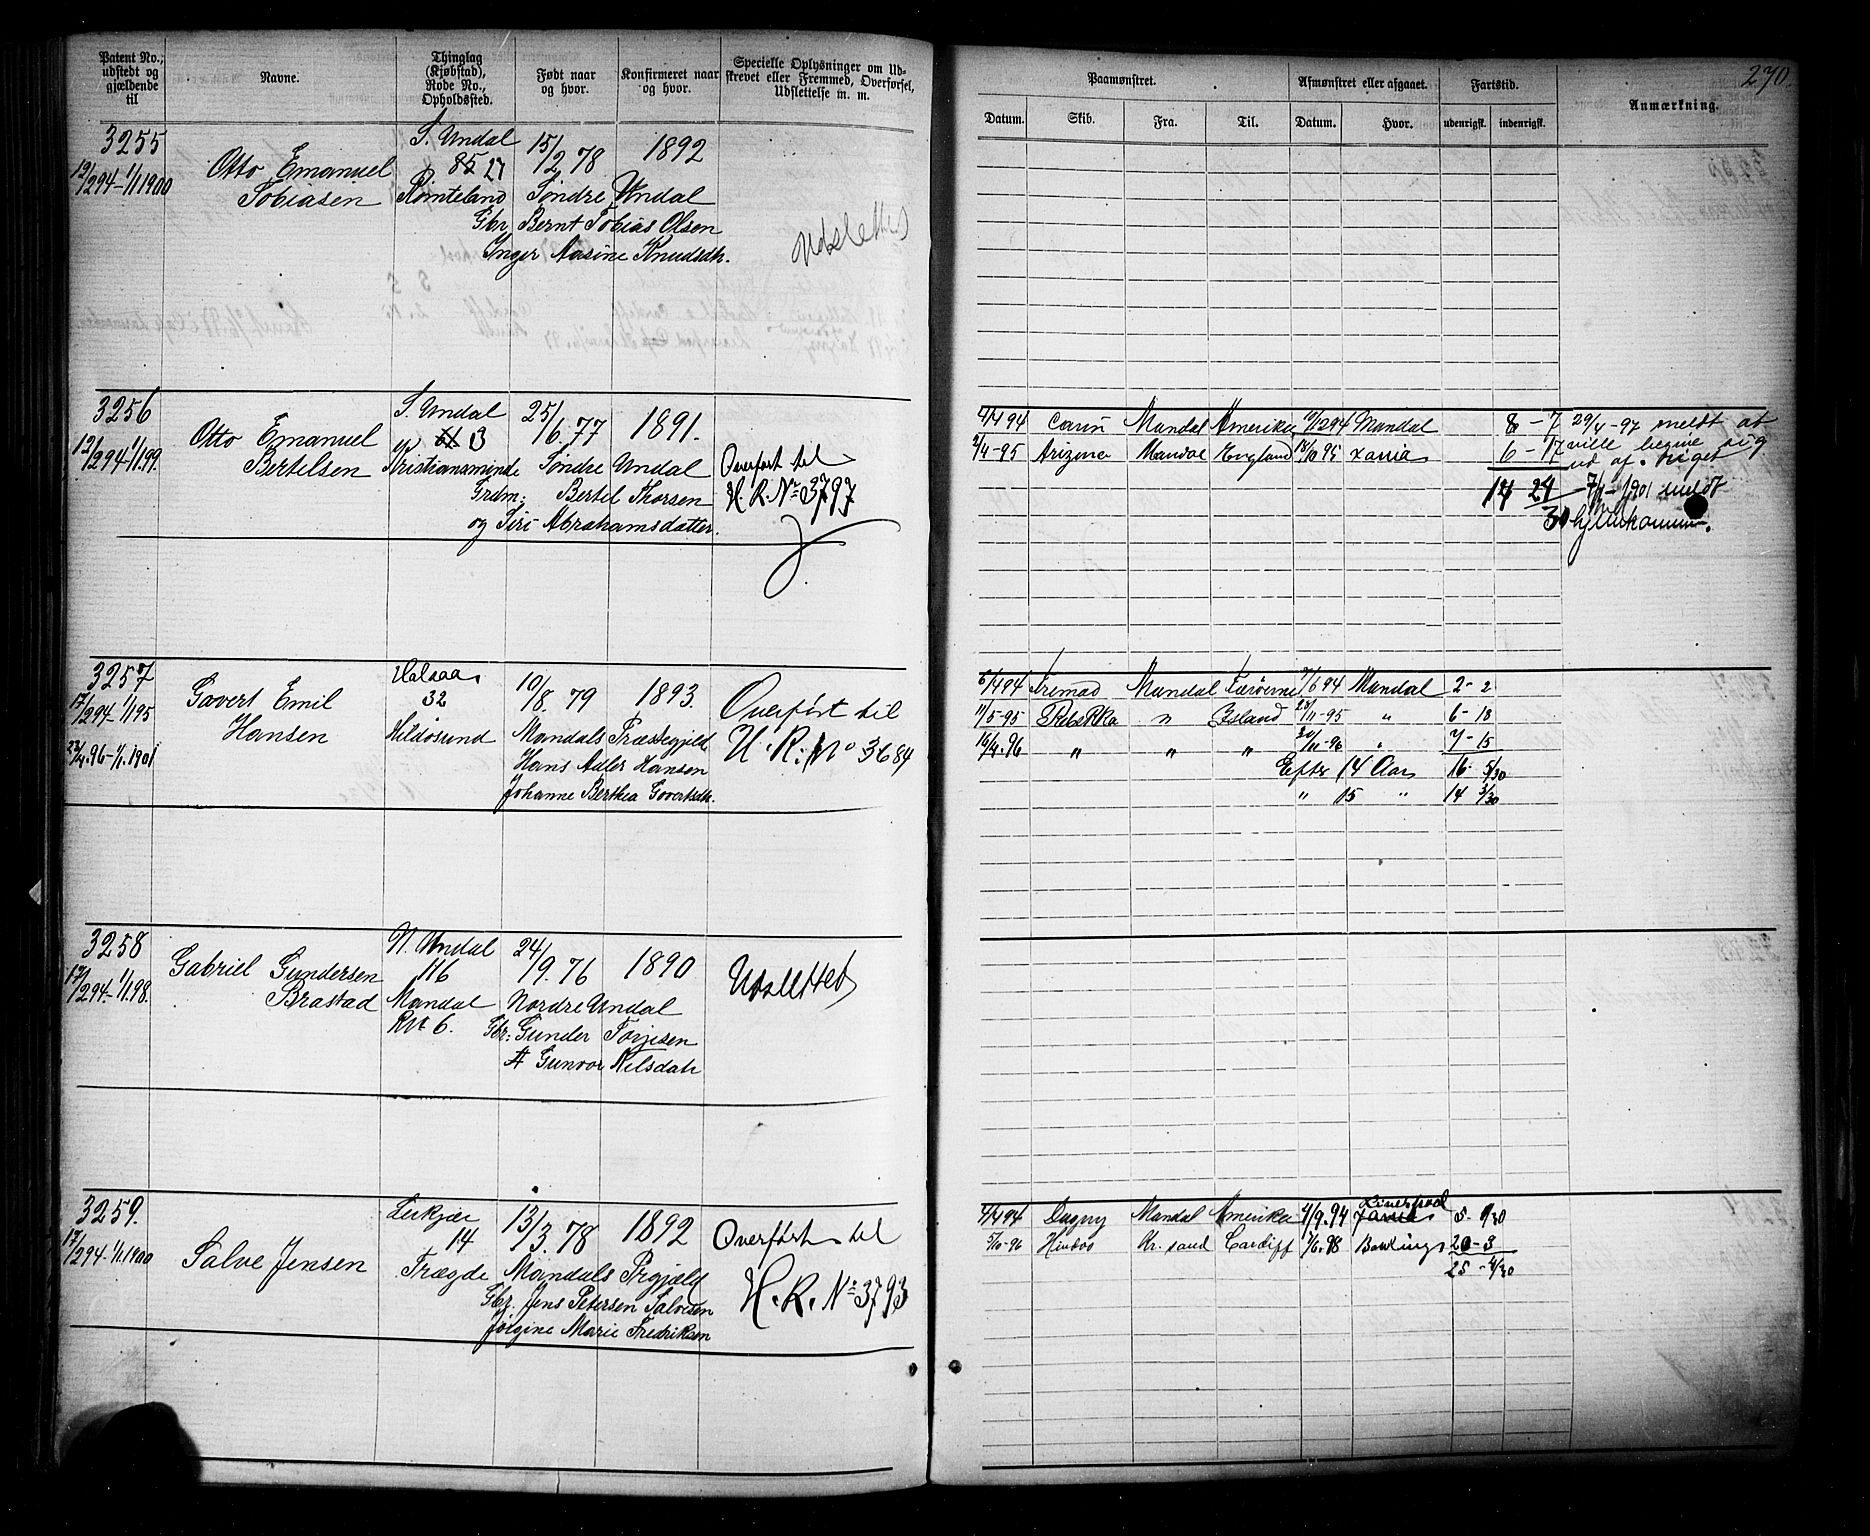 270.
Patent No.; udstedt og gjældende til
Navne.
Thinglag (Kjøbstad), Rode No., Opholdsted.
Født naar og hvor.
Konfirmeret naar og hvor.
Specielle Oplysninger om Udskrevet eller Fremmed, Overførsel, Udslettelse m. m.
Paamønstret.
Afmønstret eller afgaaet.
Fartstid.
Anmærkning.
Datum. Skib. Fra. Til. Datum. Hvor. udenrigsk. indenrigsk.
3255 S. Undal 15/2 78 1892
12/294-1/1 1900 Otto Emanuel 85 27
Tobiasen Rømteland Søndre Undal
Gbr Bernt Tobias Olsen
Inger Aasine Knudsdtr.
Udslettes
3256 S. Undal 25/6.77 1891.
12/294 1/1.99. Otto Emanuel 61 3
Bertelsen Kristiansminde Søndre Undal Overført til
Grdm: Bertel Thorsen H.R. No 3797
og Siri Abrahamsdatter.
4/4 94 Carin Mandal Amerika 19/1294 Mandal 8-7 29/4-97 meldt at
2/4-95 Arizona Mandal England 18/10 95 Xania 6-17 ville begive sig
ud af Riget
14 24 7/1-1901 meldt
30 hjemkommen.
3257 Halsaa 10/8.79 1893.
17/294-1/195 Govert Emil 32 Overført til
Hansen Hildøsund Mandals Præstegjeld H.R. No 3684
23/4.96-1/1.1901 Hans Adler Hansen
Johanne Berthea Govertsdtr.
6/4 94 Fremad Mandal Færøerne 7/6 94 Mandal 2-2
11/5-95 Rebekka " Island 28/11-95 " 6-18
16/4.96 " " " 30/11-96 " 7-15
Efter 14 Aar 16 5/30
" 15 " 14 3/30
3258 N. Undal 24/9.76 1890
17/294-1/1.98. Gabriel Gundersen 116
Brastad Mandal Nordre Undal
RNr 6. Gbr: Gunder Torjesen
Gunvor Nilsdatr
Udslettet
3259. Leikjær 13/3.78 1892
17/294-1/1.1900 Salve Jensen 14 Overført til
Trægde Mandals Prgjæld
Gbr. Jens Petersen Salvesen H.R. No 3793
Jørgine Marie Fredriksen
4/4 94 Dagny Mandal Amerika 4/9.94 Liverpool 5 9/30
5/10-96 Hindoo Kr. sand Cardiff 1/6.98 Bowling 20-3
25-4/30